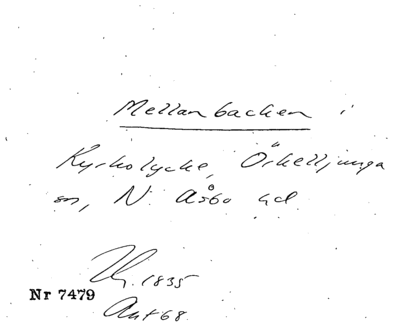 Mellanbacken i
Kyrkolycke, Örkelljunga
sn, N. Åsbo hd
1835
Nr 7479
Ant 68